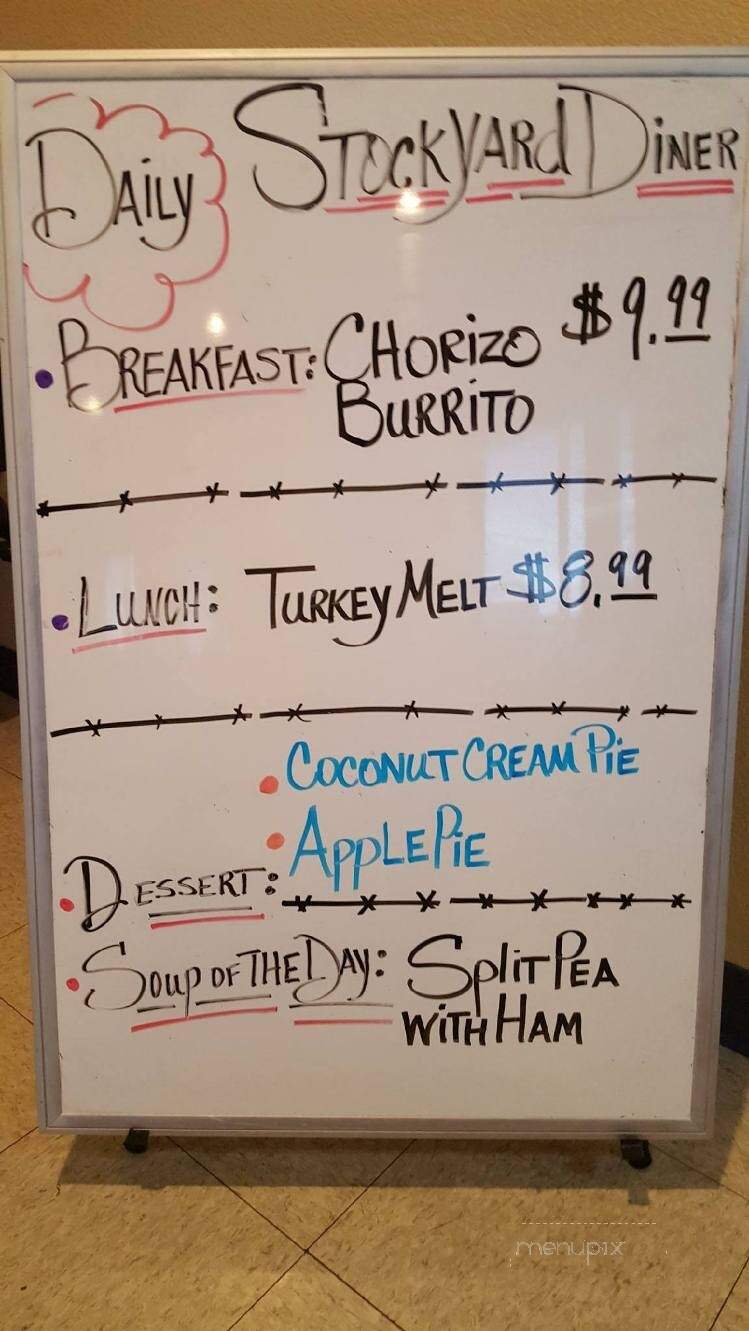 Daily Stockyard Diner
• Breakfast: Chorizo $9.99
Burrito
• Lunch: Turkey Melt $8.99
• Coconut Cream Pie
• Apple Pie
• Dessert:
• Soup of the Day: Split Pea
with Ham
menupix